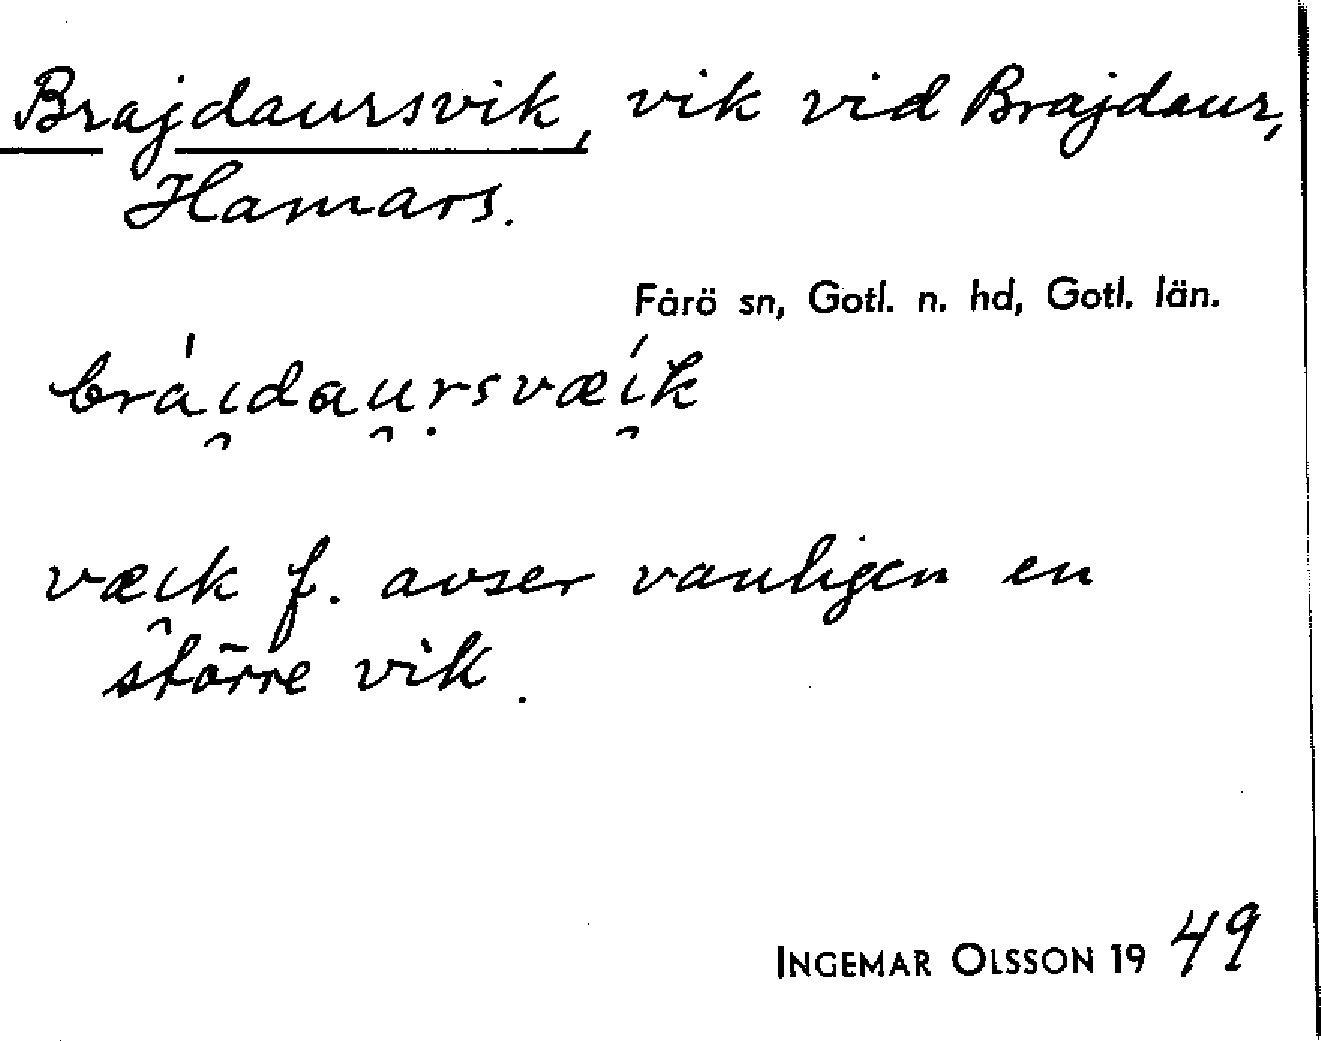 Brajdaursvik, vik vid Brajdaur,
Hamars.
Fårö sn, Gotl. n. hd, Gotl. län.
bra̍ı̯dau̯ṛsvæí̯k
væı̯k f. avser vanligen en
större vik.
INGEMAR OLSSON 1949